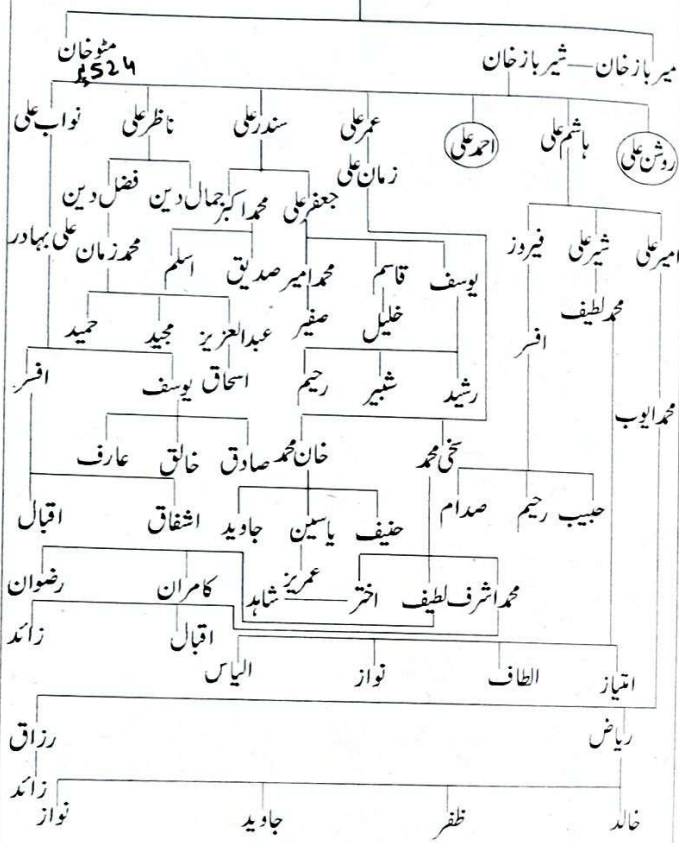 میر باز خان — شیر باز خان مٹو خان
524
روشن علی ہاشم علی احمد علی عمر علی سندر علی ناظر علی نواب علی
زمان علی
امیر علی شیر علی فیروز جعفر علی محمد اکبر جمال دین فضل دین
یوسف قاسم محمد امیر صدیق اسلم محمد زمان علی بہادر
محمد لطیف افسر خلیل صفیر عبدالعزیز مجید حمید
رشید شبیر رحیم اسحاق یوسف افسر
محمد ایوب
سخی محمد خان محمد صادق خالق عارف
حبیب رحیم صدام حنیف یاسین جاوید اشفاق اقبال
محمد اشرف لطیف اختر عمریز شاہد کامران رضوان
اقبال زائد
امتیاز الطاف نواز الیاس
ریاض رزاق
زائد
خالد ظفر جاوید نواز